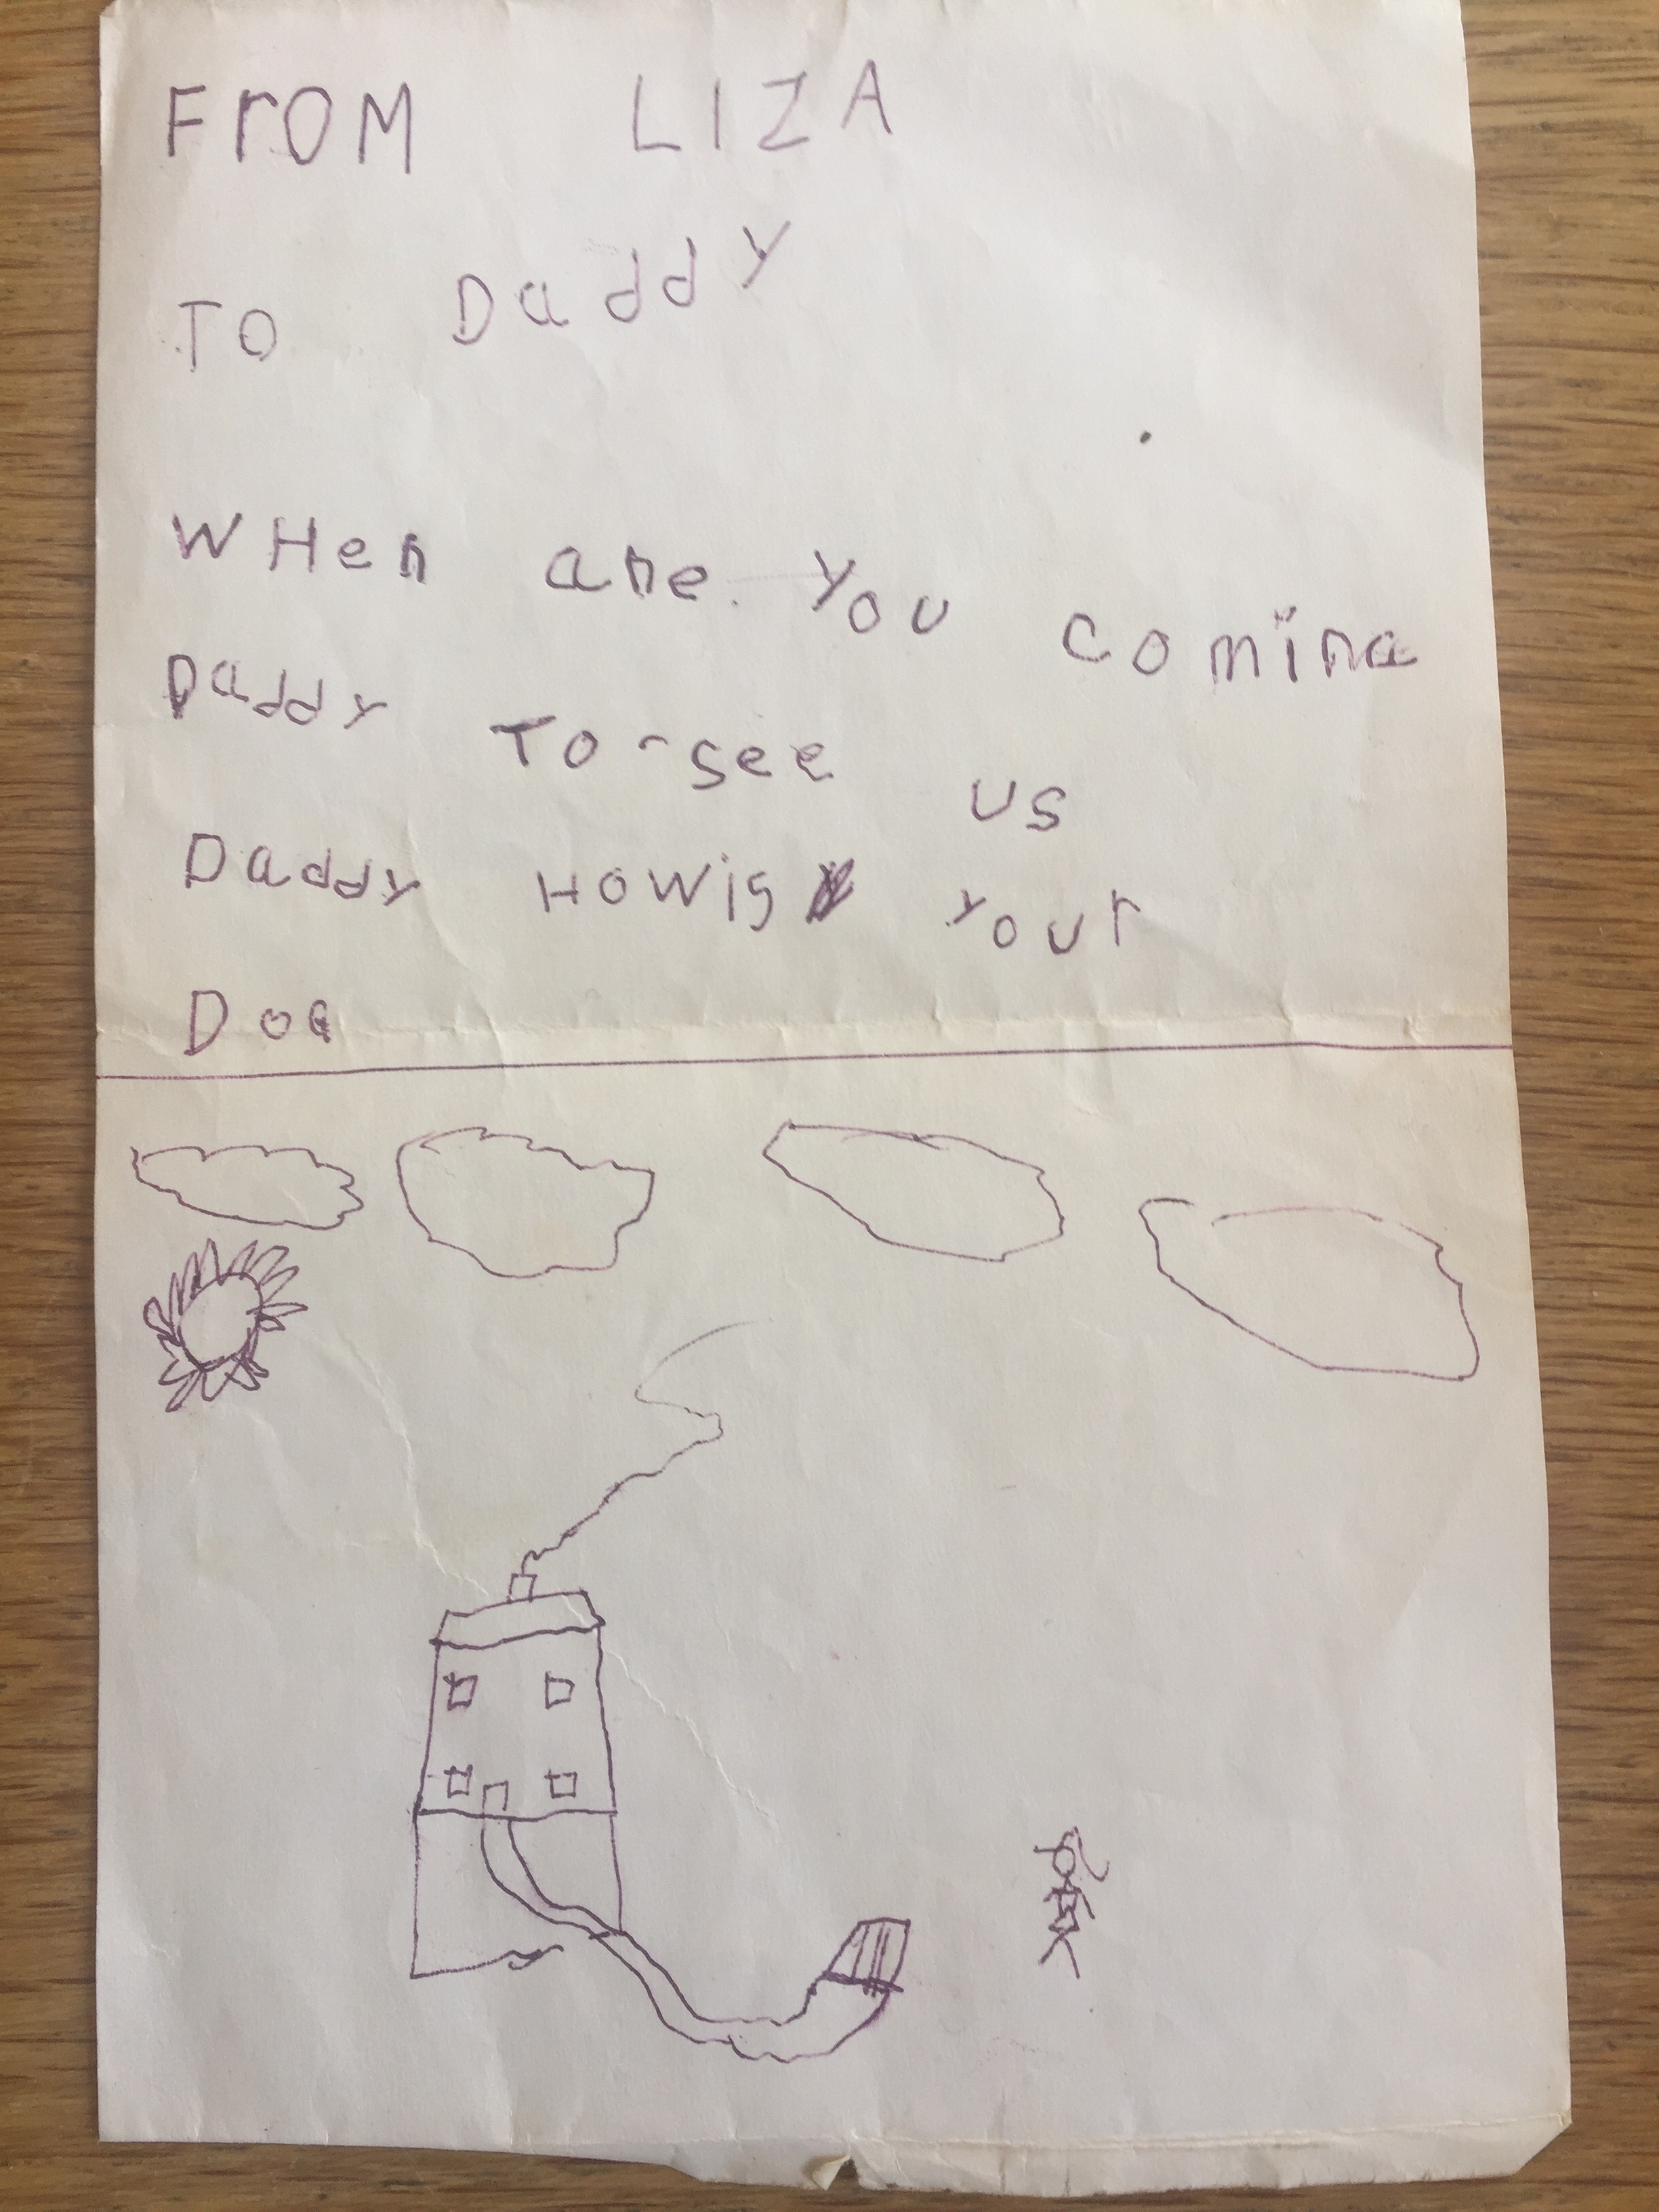 FrOM LIZA
TO Daddy
WHen are you coming
Daddy To-see us
Daddy HOWis your
Dog